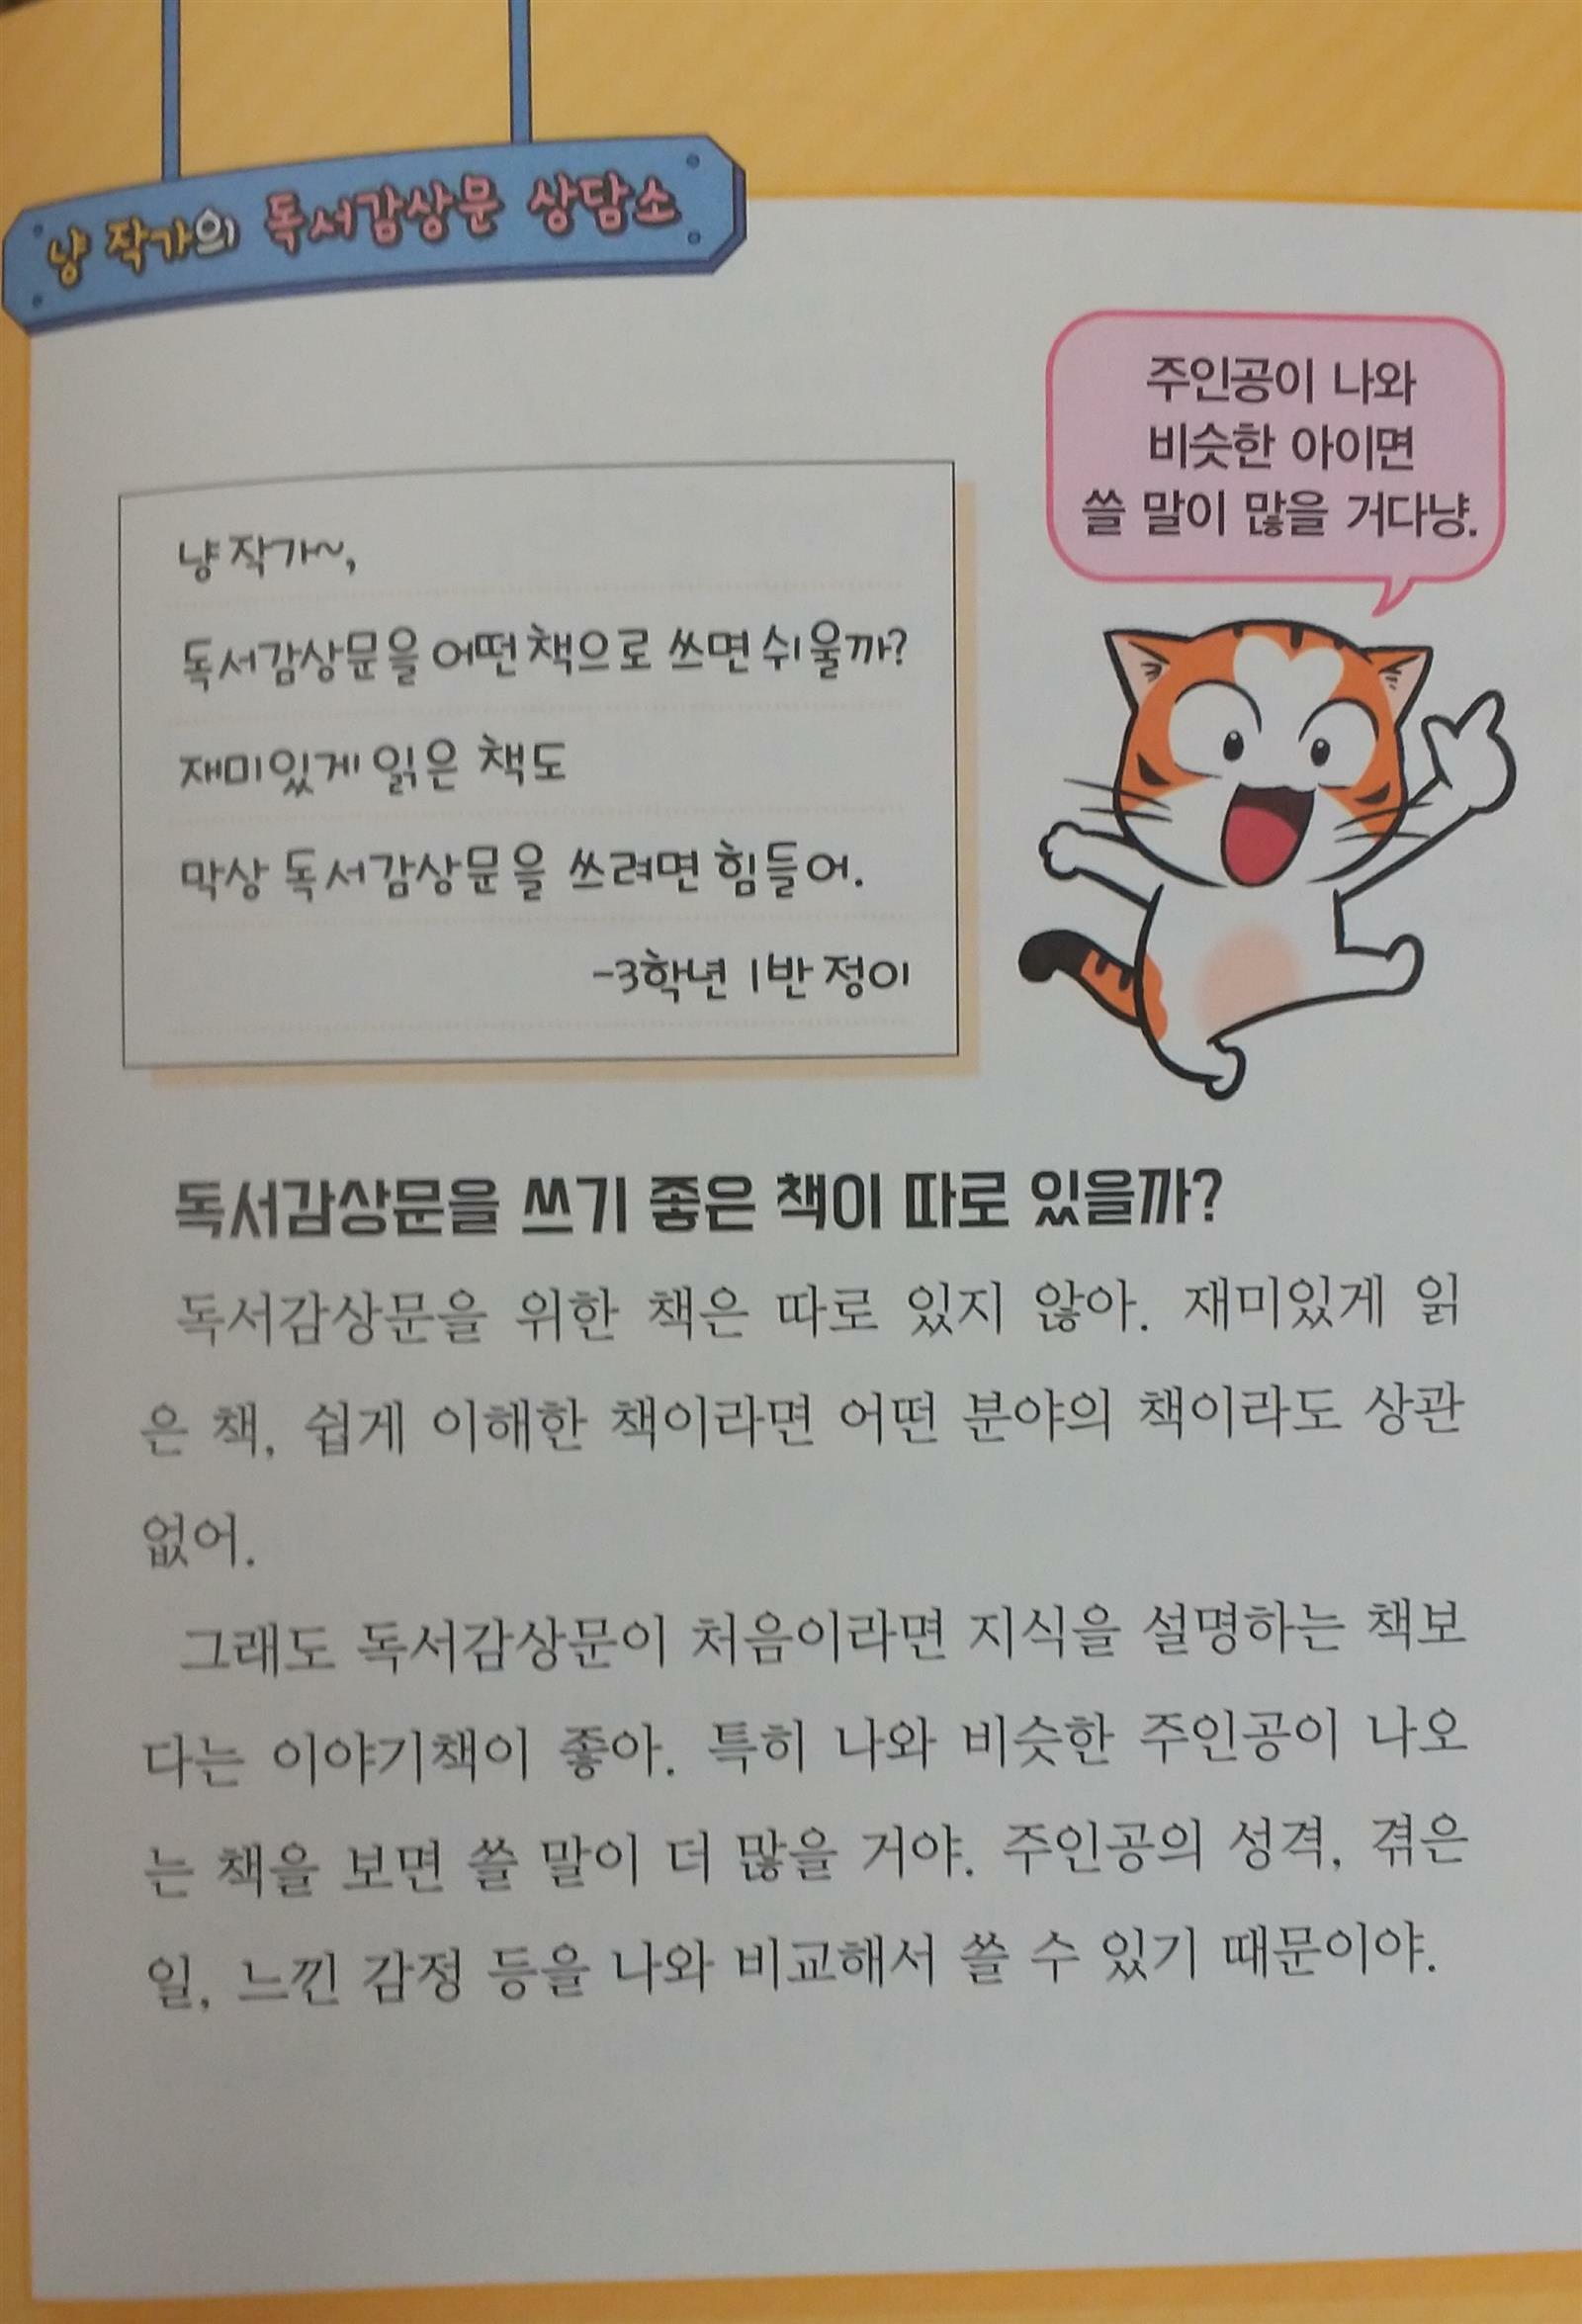 냥 작가의 독서감상문 상담소
주인공이 나와
비슷한 아이면
쓸 말이 많을 거다냥.
냥 작가~,
독서감상문을 어떤 책으로 쓰면 쉬울까?
재미있게 읽은 책도
막상 독서감상문을 쓰려면 힘들어.
-3학년 1반 정이
독서감상문을 쓰기 좋은 책이 따로 있을까?
독서감상문을 위한 책은 따로 있지 않아. 재미있게 읽
은 책, 쉽게 이해한 책이라면 어떤 분야의 책이라도 상관
없어.
그래도 독서감상문이 처음이라면 지식을 설명하는 책보
다는 이야기책이 좋아. 특히 나와 비슷한 주인공이 나오
는 책을 보면 쓸 말이 더 많을 거야. 주인공의 성격, 겪은
일, 느낀 감정 등을 나와 비교해서 쓸 수 있기 때문이야.